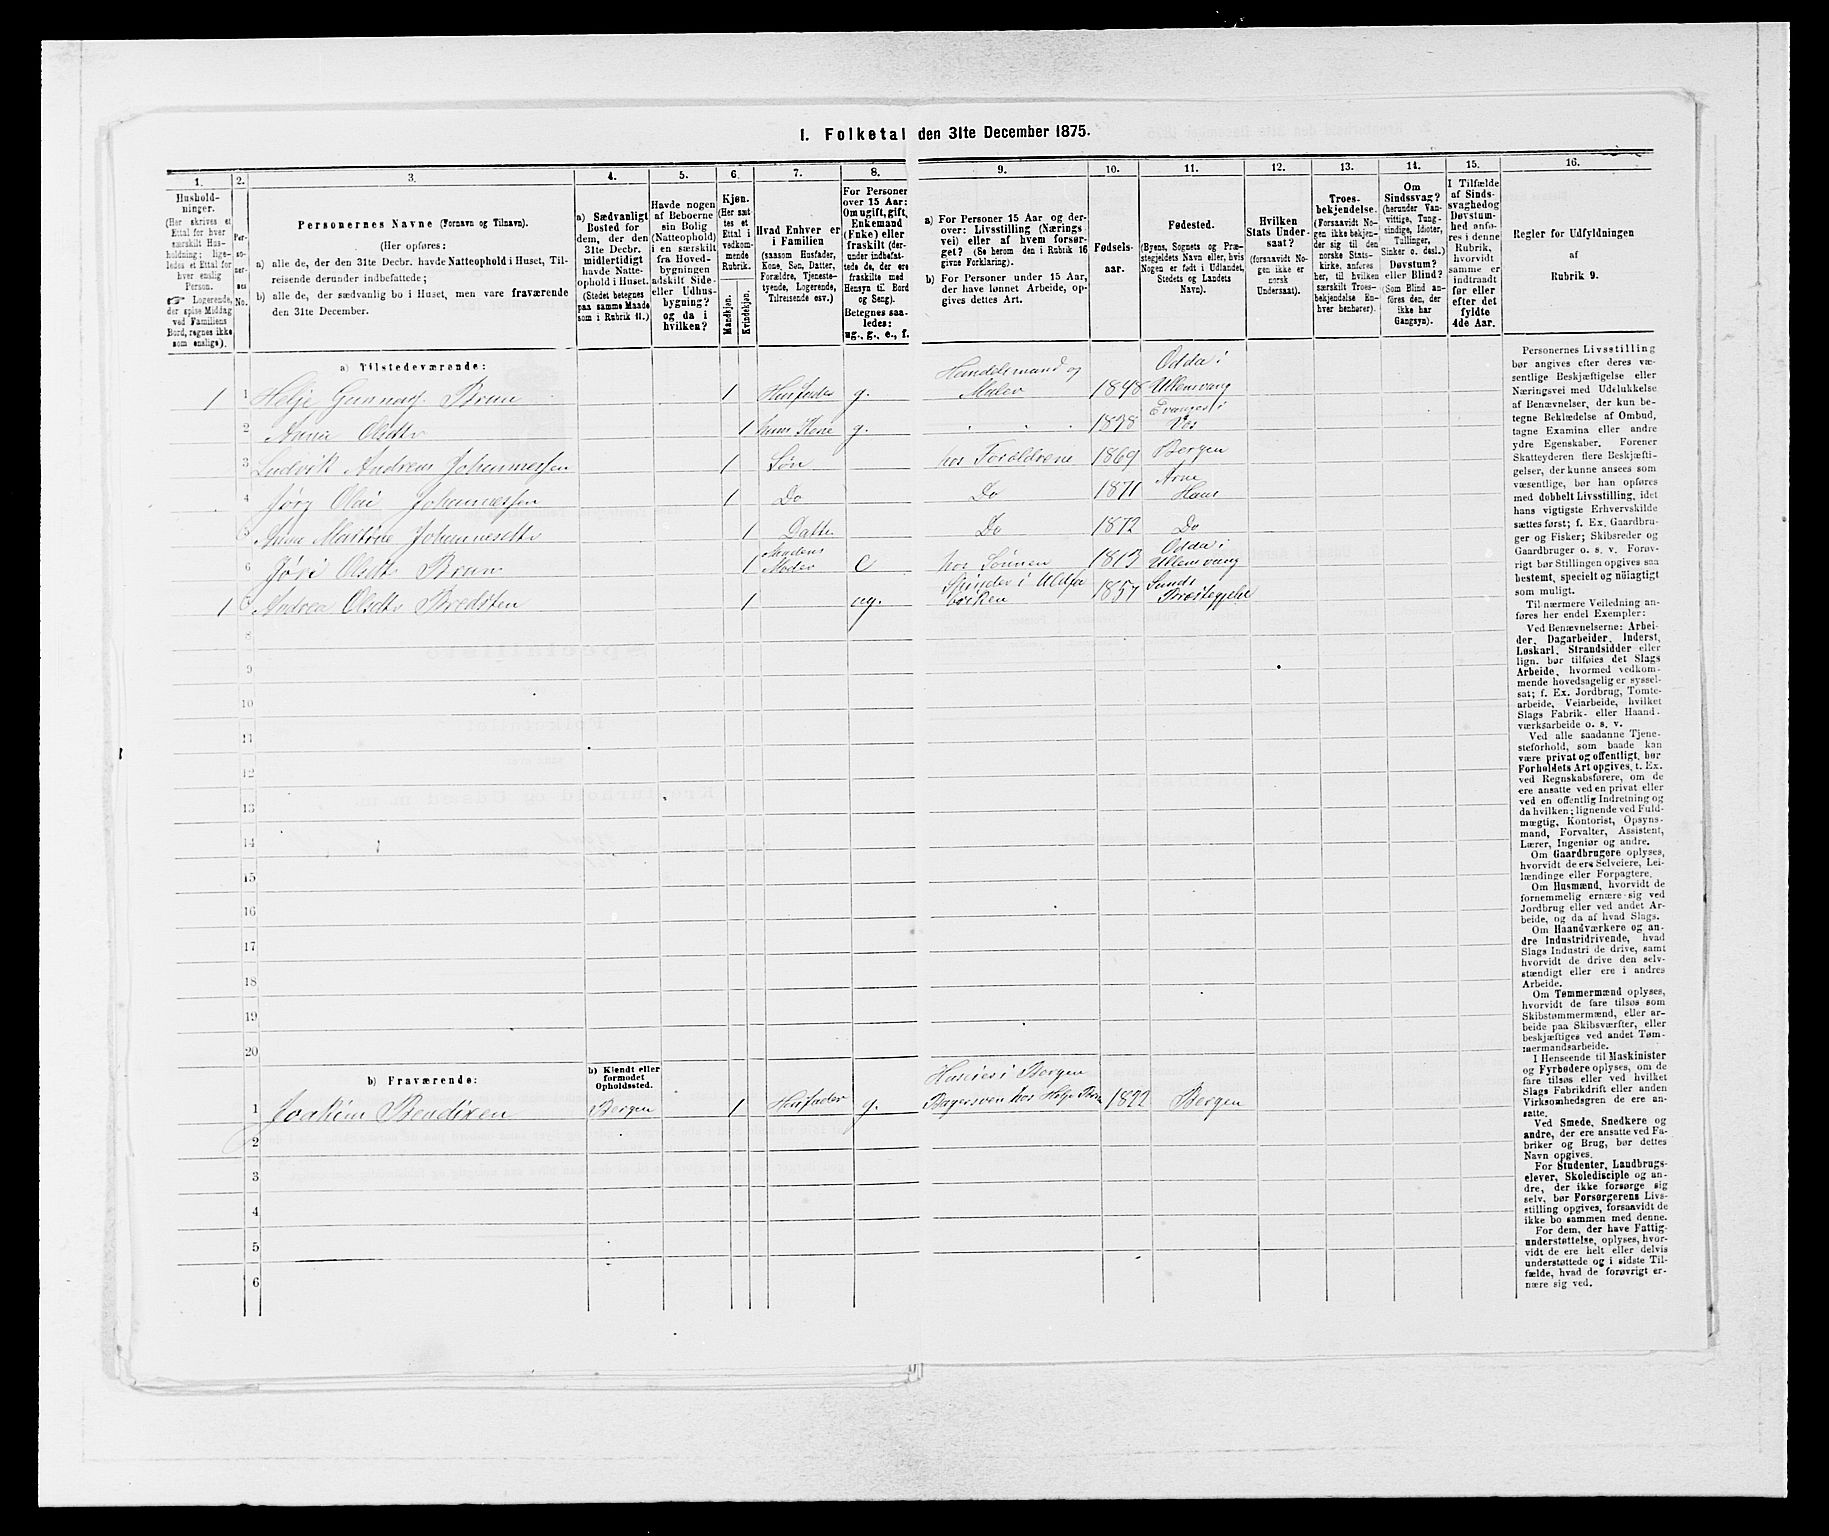 I. Folketal den 31te December 1875.
1.
Husholdninger.
(Her skrives et
Ettal for hver
særskilt Husholdning; ligeledes
et Ettal for
hver enslig
Person.
Logerende,
der spise Middag
ved Familiens
Bord, regnes ikke
som enslige).
2.
Personernes
No.
3.
Personernes Navne (Fornavn og Tilnavn).
(Her opføres:
a) alle de, der den 31te Decbr. havde Natteophold i Huset, Tilreisende derunder indbefattede;
b) alle de, der sædvanlig bo i Huset, men vare fraværende
den 31te December.
4.
a) Sædvanligt
Bosted for
dem, der den
31te Decbr.
midlertidigt
havde Natteophold i Huset.
(Stedet betegnes
paa samme Maade
som i Rubrik 11.)
5.
Havde nogen
af Beboerne
sin Bolig
(Natteophold)
i en særskilt
fra Hovedbygningen
adskilt Side- eller Udhusbygning?
og da i
hvilken?
6.
Kjøn.
(Her sættes et
Ettal i
vedkommende
Rubrik.
Mandkjøn.
Kvindekjøn.
7.
Hvad Enhver er
i Familien
(saasom Husfader,
Kone, Søn, Datter,
Forældre, Tjenestetyende, Logerende,
Tilreisende osv.)
8.
For Personer
over 15 Aar:
Om ugift, gift,
Enkemand
(Enke) eller
fraskilt (derunder indbefattede de, der ere
fraskilte med
Hensyn til Bord
og Seng).
Betegnes saaledes:
ug., g., e., f.
9.
a) For Personer 15 Aar og derover: Livsstilling (Næringsvei) eller af hvem forsørget? (Se herom den i Rubrik 16
givne Forklaring).
b) For Personer under 15 Aar,
der have lønnet Arbeide, opgives dettes Art.
10.
Fødselsaar.
11.
Fødested.
(Byens, Sognets og Præstegjeldets Navn eller, hvis
Nogen er født i Udlandet,
Stedets og Landets
Navn).
12.
Hvilken
Stats Undersaat?
(forsaavidt Nogen ikke er
norsk
Undersaat).
13.
Troesbekjendelse.
(Forsaavidt Nogen ikke bekjender sig til den
norske Statskirke, anføres
her, til hvilken
særskilt Troesbekjendelse Enhver henhører).
14.
Om
Sindssvag?
(herunder Vanvittige, Tungsindige, Idioter,
Tullinger,
Sinker o. desl.)
Døvstum?
eller Blind?
(Som Blind anføres den, der
ikke har
Gangsyn).
15.
I Tilfælde
af Sindssvaghed og
Døvstumhed anføres i denne
Rubrik,
hvorvidt
samme er
indtraadt
før eller
efter det
fyldte
4de Aar.
16.
Regler for Udfyldningen
af
Rubrik 9.
a) Tilstedeværende:
1 1 Helje Gunnars. Brun 1 Husfader g. Handelsmand og Maler 1848 Odda i Ullensvang
2 Anna Olsdtr 1 hans Kone g. 1838 Evanger i Vos
3 Ludvik Andreas Johannessen 1 Søn hos Forældrene 1869 Bergen
4 Jørg Olai Johannessen 1 Do Do 1871 Arne Haus
5 Anna Martine Johannesdtr 1 Datter Do 1872 Do
6 Jøri Olsdtr Brun 1 Mandens Moder e hos Sønnen 1813 Odda i Ullensvang
1 Andrea Olsdtr Bredsten 1 ug. 1857 Sunds Præstegjeld
8
9
10
11
12
13
14
15
16
17
18
19
20
b) Fraværende:
b) Kjendt eller
formodet
Opholdssted.
1 Joakim Bendixen Bergen 1 Husfader g. Bagersven hos Helje Brun 1822 Bergen
2
3
4
5
6
Personernes Livsstilling
bør angives efter deres væsentlige Beskjæftigelse eller
Næringsvei med Udelukkelse
af Benævnelser, der kun betegne Beklædelse af Ombud,
tagne Examina eller andre
ydre Egenskaber. Forener
Skatteyderen flere Beskjæftigelser, der kunne ansees som
væsentlige, bør han opføres
med dobbelt Livsstilling, idet
hans vigtigste Erhvervskilde
sættes først; f. Ex. Gaardbruger og Fisker; Skibsreder og
Gaardbruger o. s. v. Forøvrigt bør Stillingen opgives saa
bestemt, specielt og nøiagtigt
som muligt.
Til nærmere Veiledning anføres her endel Exempler:
Ved Benævnelserne: Arbeider, Dagarbeider, Inderst,
Løskarl, Strandsidder eller
lign. bør tilføies det Slags
Arbeide, hvormed vedkommende hovedsagelig er sysselsat; f. Ex. Jordbrug, Tomtearbeide, Veiarbeide, hvilket
Slags Fabrik- eller Haandværksarbeide o. s. v.
Ved alle saadanne Tjenesteforhold, som baade kan
være privat og offentligt, bør
Forholdets Art opgives, t. Ex.
ved Regnskabsførere, om de
ere ansatte ved en privat eller
ved en offentlig Indretning og
da hvilken; lignende ved Fuldmægtig, Kontorist, Opsynsmand, Forvalter, Assistent,
Lærer, Ingeniør og andre.
Om Gaardbrugere oplyses,
hvorvidt de ere Selveiere, Leilændinge eller Forpagtere.
Om Husmænd, hvorvidt de
fornemmelig ernære sig ved
Jordbrug eller ved andet Arbeide, og da af hvad Slags.
Om Haandværkere og andre Industridrivende, hvad
Slags Industri de drive, samt
hvorvidt de drive den selvstændigt eller ere i andres
Arbeide.
Om Tømmermænd oplyses,
hvorvidt de fare tilsøs som
Skibstømmermænd, eller arbeide paa Skibsværfter, eller
beskjæftiges ved andet Tømmermandsarbeide.
I Henseende til Maskinister
og Fyrbødere oplyses, om de
fare tilsøs eller ved hvilket
Slags Fabrikdrift eller anden
Virksomhedsgren de ere ansatte.
Ved Smede, Snedkere og
andre, der ere ansatte ved Fabriker og Brug, bør dettes
Navn opgives.
For Studenter, Landbrugselever, Skoledisciple og andre, der ikke forsørge sig
selv, bør Forsørgerens Livsstilling opgives, forsaavidt de
ikke bo sammen med denne.
For dem, der have Fattigunderstøttelse, oplyses, hvorvidt de ere helt eller delvis
understøttede og i sidste Tilfælde, hvad de forøvrigt ernære sig ved.